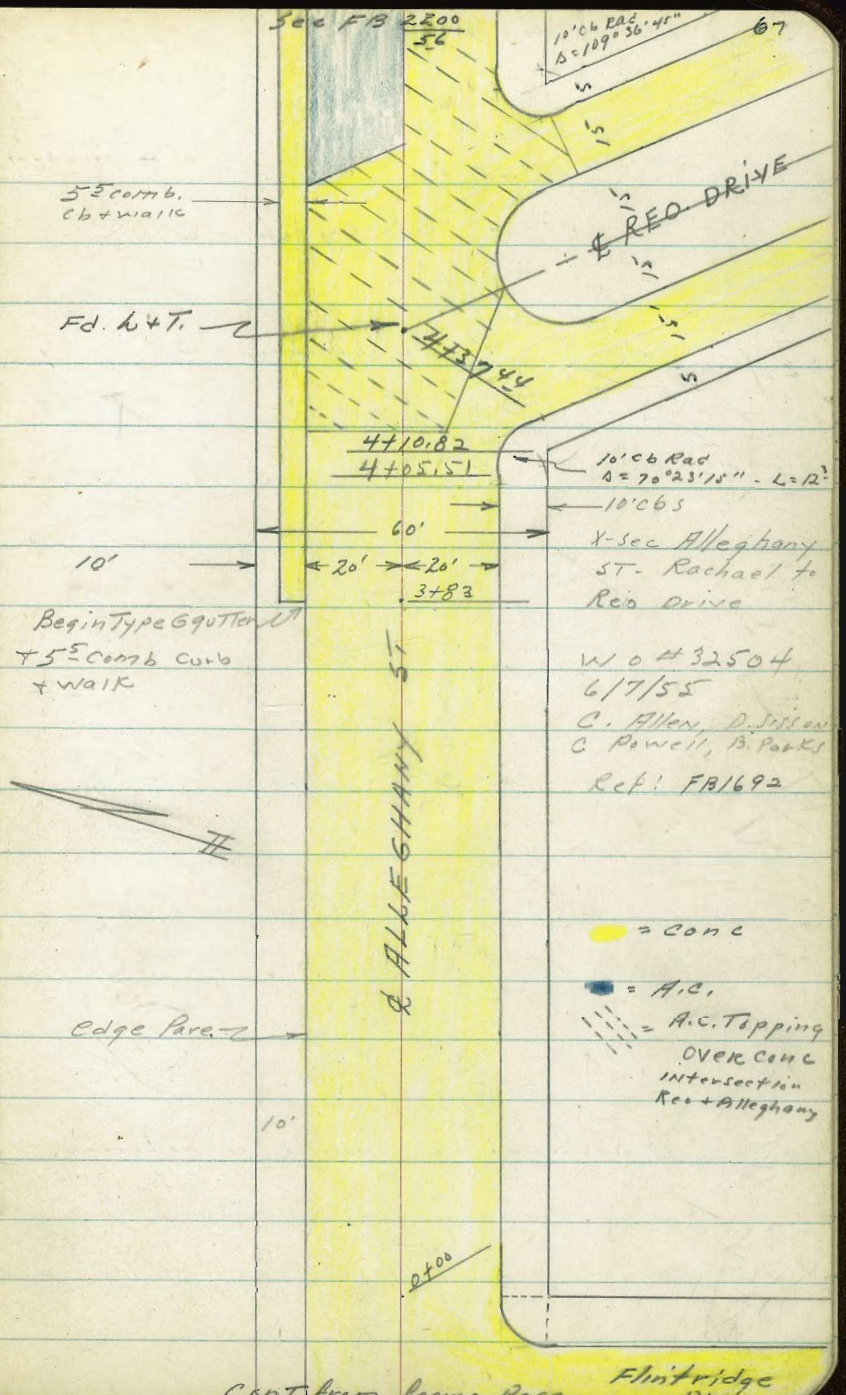 See FB 2200
56
67
10' Cb Rad
Δ=109° 36' 45"
5
15
5⁵ comb.
cb + walk
15
℄ REO DRIVE
15
15
5
Fd. L + T.
4+37⁴⁴
4+10.82
4+05.51
10' Cb Rad
Δ= 70° 23' 15" - L=12³
10' cbs
60'
10'
20'
20'
3+83
X-Sec Alleghany
ST- Rachael to
Reo Drive
Begin Type G gutter
+ 5⁵ Comb Curb
+ walk
W O # 32504
6/7/55
C. Allen, D. Sisson
C Powell, B. Parks
Ref: FB1692
℄ ALLEGHANY ST
= conc
= A.C.
= A.C. Topping
over conc
intersection
Reo + Alleghany
edge Pave.
10'
0+00
Flintridge